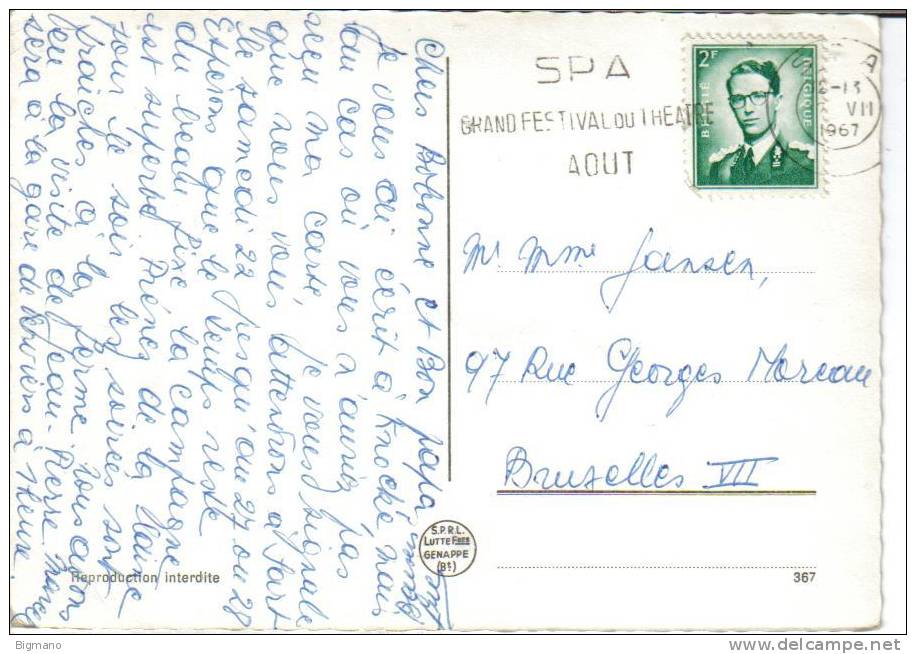 Chers Bobonne et Bon papa
Je vous ai écrit à Knocke mais
au cas où vous n'auriez pas
reçu ma carte, je vous signale
que nous vous attendrons à
le samedi 22 jusqu'au 27 ou 28
Espérons que le temps reste
au beau fixe la campagne
est superbe. Prenez de la laine
pour le soir les soirées sont
fraîches à la ferme. Nous avons
eu la visite de Jean-Pierre. Marcel
sera à la gare de Verviers à heure
SPA
GRAND FESTIVAL DU THEATRE
AOUT
2F
BELGIË BELGIQUE
-13
VII
1967
Mr Mme Jansen,
97 Rue Georges Moreau
Bruxelles VII
S.P.R.L.
LUTTE FRES
GENAPPE
(Bt)
Reproduction interdite
367
Bigmano
www.delcampe.net